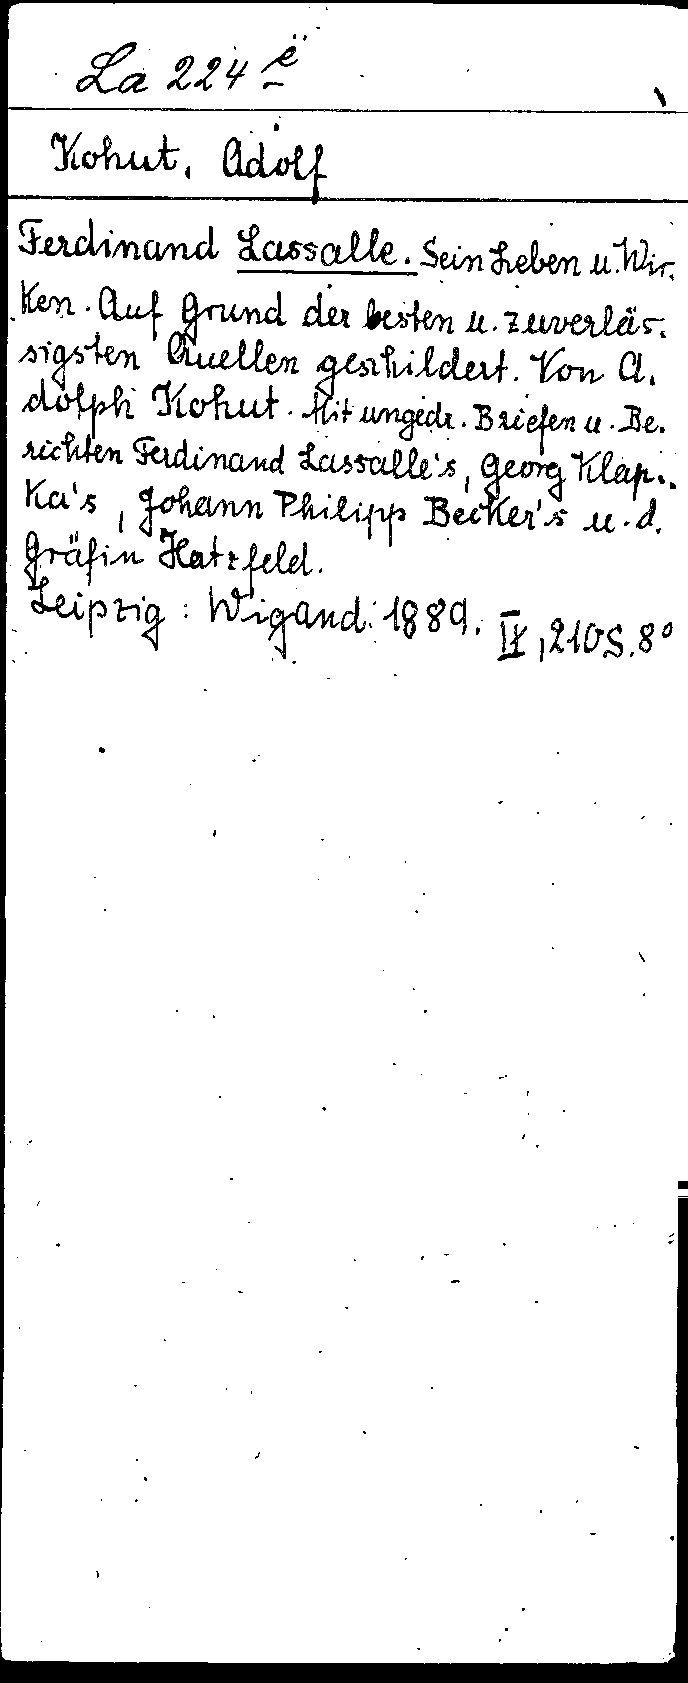 La 224 ë
Kohut, Adolf
Ferdinand Lassalle. Sein Leben u. Wir-
ken. Auf Grund der besten u. zuverläs-
sigsten Quellen geschildert. Von A-
dolph Kohut. Mit ungedr. Briefen u. Be-
richten Ferdinand Lassalle's, Georg Klap-
ka's, Johann Philipp Becker's u. d.
Gräfin Hatzfeld.
Leipzig: Wigand 1889. , 210 S. 8°